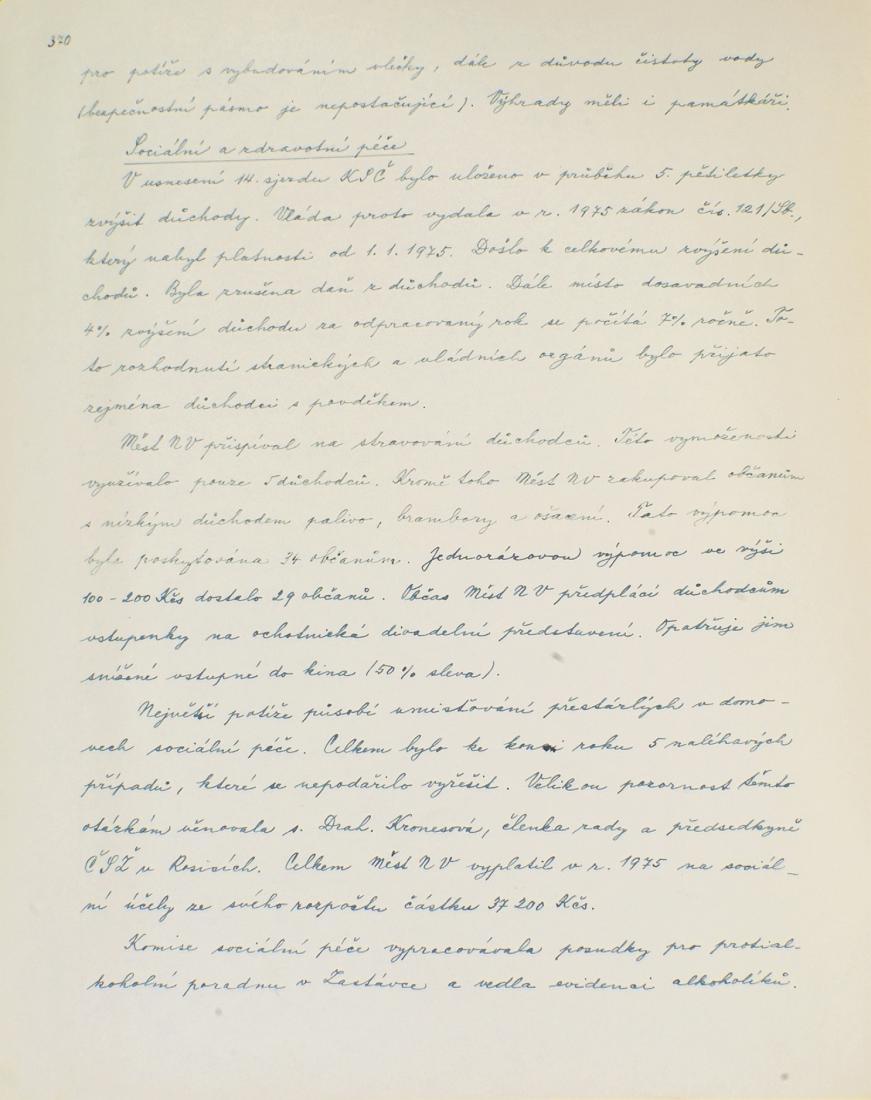 370
pro potíže s vybudováním vlečky, dále z důvodu čistoty vody
(bezpečnostní pásmo je nepostačující). Výhrady měli i památkáři.
Sociální a zdravotní péče
V usnesení 14. sjezdu KSČ bylo uloženo v průběhu 5. pětiletky
zvýšit důchody. Vláda proto vydala v r. 1975 zákon čís. 121/Sb.,
který nabyl platnosti od 1. 1. 1975. Došlo k celkovému zvýšení dů-
chodů. Byla zrušena daň z důchodů. Dále místo dosavadních
4% zvýšení důchodu za odpracovaný rok se počítá 7% ročně. To-
to rozhodnutí stranických a vládních orgánů bylo přijato
zejména důchodci s povděkem.
Měst NV přispíval na stravování důchodců. Této vymoženosti
využívalo pouze 5 důchodců. Kromě toho Měst NV zakupoval občanům
s nízkým důchodem palivo, brambory a ošacení. Tato výpomoc
byla poskytována 34 občanům. Jednorázovou výpomoc ve výši
100-200 Kčs dostalo 29 občanů. Občas Měst NV předplácí důchodcům
vstupenky na ochotnická divadelní představení. Opatřuje jim
snížené vstupné do kina (50% sleva).
Největší potíže působí umisťování přestárlých v domo-
vech sociální péče. Celkem bylo ke konci roku 5 naléhavých
případů, které se nepodařilo vyřešit. Velikou pozornost těmto
otázkám věnovala s. Drah. Kronesová, členka rady a předsedkyně
ČSŽ v Rosicích. Celkem Měst NV vyplatil v r. 1975 na sociál-
ní účely ze svého rozpočtu částku 37 200 Kčs.
Komise sociální péče vypracovávala posudky pro protial-
koholní poradnu v Zastávce a vedla evidenci alkoholiků.